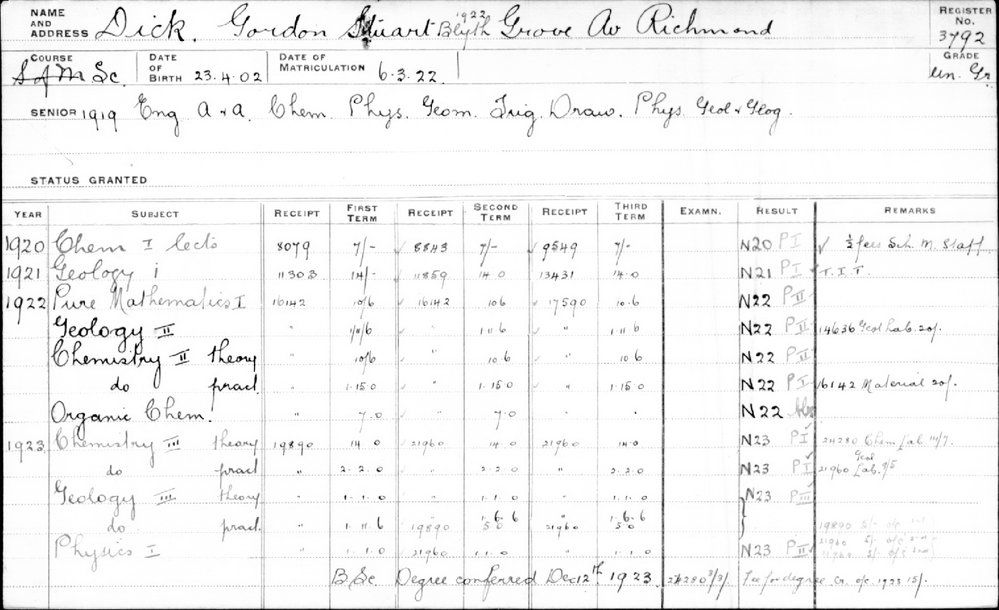 NAME AND ADDRESS Dick. Gordon Stuart 1922 Blyth Grove Av Richmond REGISTER No. 3792
COURSE Sc. DATE OF BIRTH 23.4.02 DATE OF MATRICULATION 6.3.22. GRADE Un. Gr.
SENIOR 1919 Eng A & A. Chem. Phys. Geom. Trig. Draw. Phys Geol & Geog.
STATUS GRANTED
YEAR SUBJECT RECEIPT FIRST TERM RECEIPT SECOND TERM RECEIPT THIRD TERM EXAMN. RESULT REMARKS
1920 Chem I lects 8079 7/- 8843 7/- 9549 7/- N20 PI ½ fees Sch. M. Staff
1921 Geology i 11303 14/- 11859 14.0 13431 14.0 N21 PI T.I.T.
1922 Pure Mathematics I 16142 10/6 16142 10 6 17590 10.6 N22 PII
Geology II " " 1 11 6 " 1 11 6 N22 PII 14636 Geol Lab. 20/-
Chemistry II theory " 10/6 " 10 6 " 10 6 N22 PII
do pract " 1.15.0 " 1.15.0 " 1.15.0 N22 PI 16142 Material 20/-
Organic Chem. " 7.0 " 7.0 " " N22
1923 Chemistry III theory 19890 14.0 21960 14.0 21960 14.0 N23 PI 24280 Chem Lab 14/7.
do pract " 2.2.0 " 2.2.0 " 2.2.0 N23 PI 21960 Geol Lab.
Geology III theory " 1.1.0 " 1.1.0 " 1.1.0 N23 PIII
do pract. " 1.11.6 19890 1.6.6 5 0 21960 1.6.6 5 0 19890 5/-
21960 5/-
Physics I " 1.1.0 21960 1.1.0 " 1.1.0 N23 PII 21960 5/-
B.Sc. Degree conferred Dec 12th 1923. 24280 3/3/- Fee for degree Cr. o/c 1923 15/-